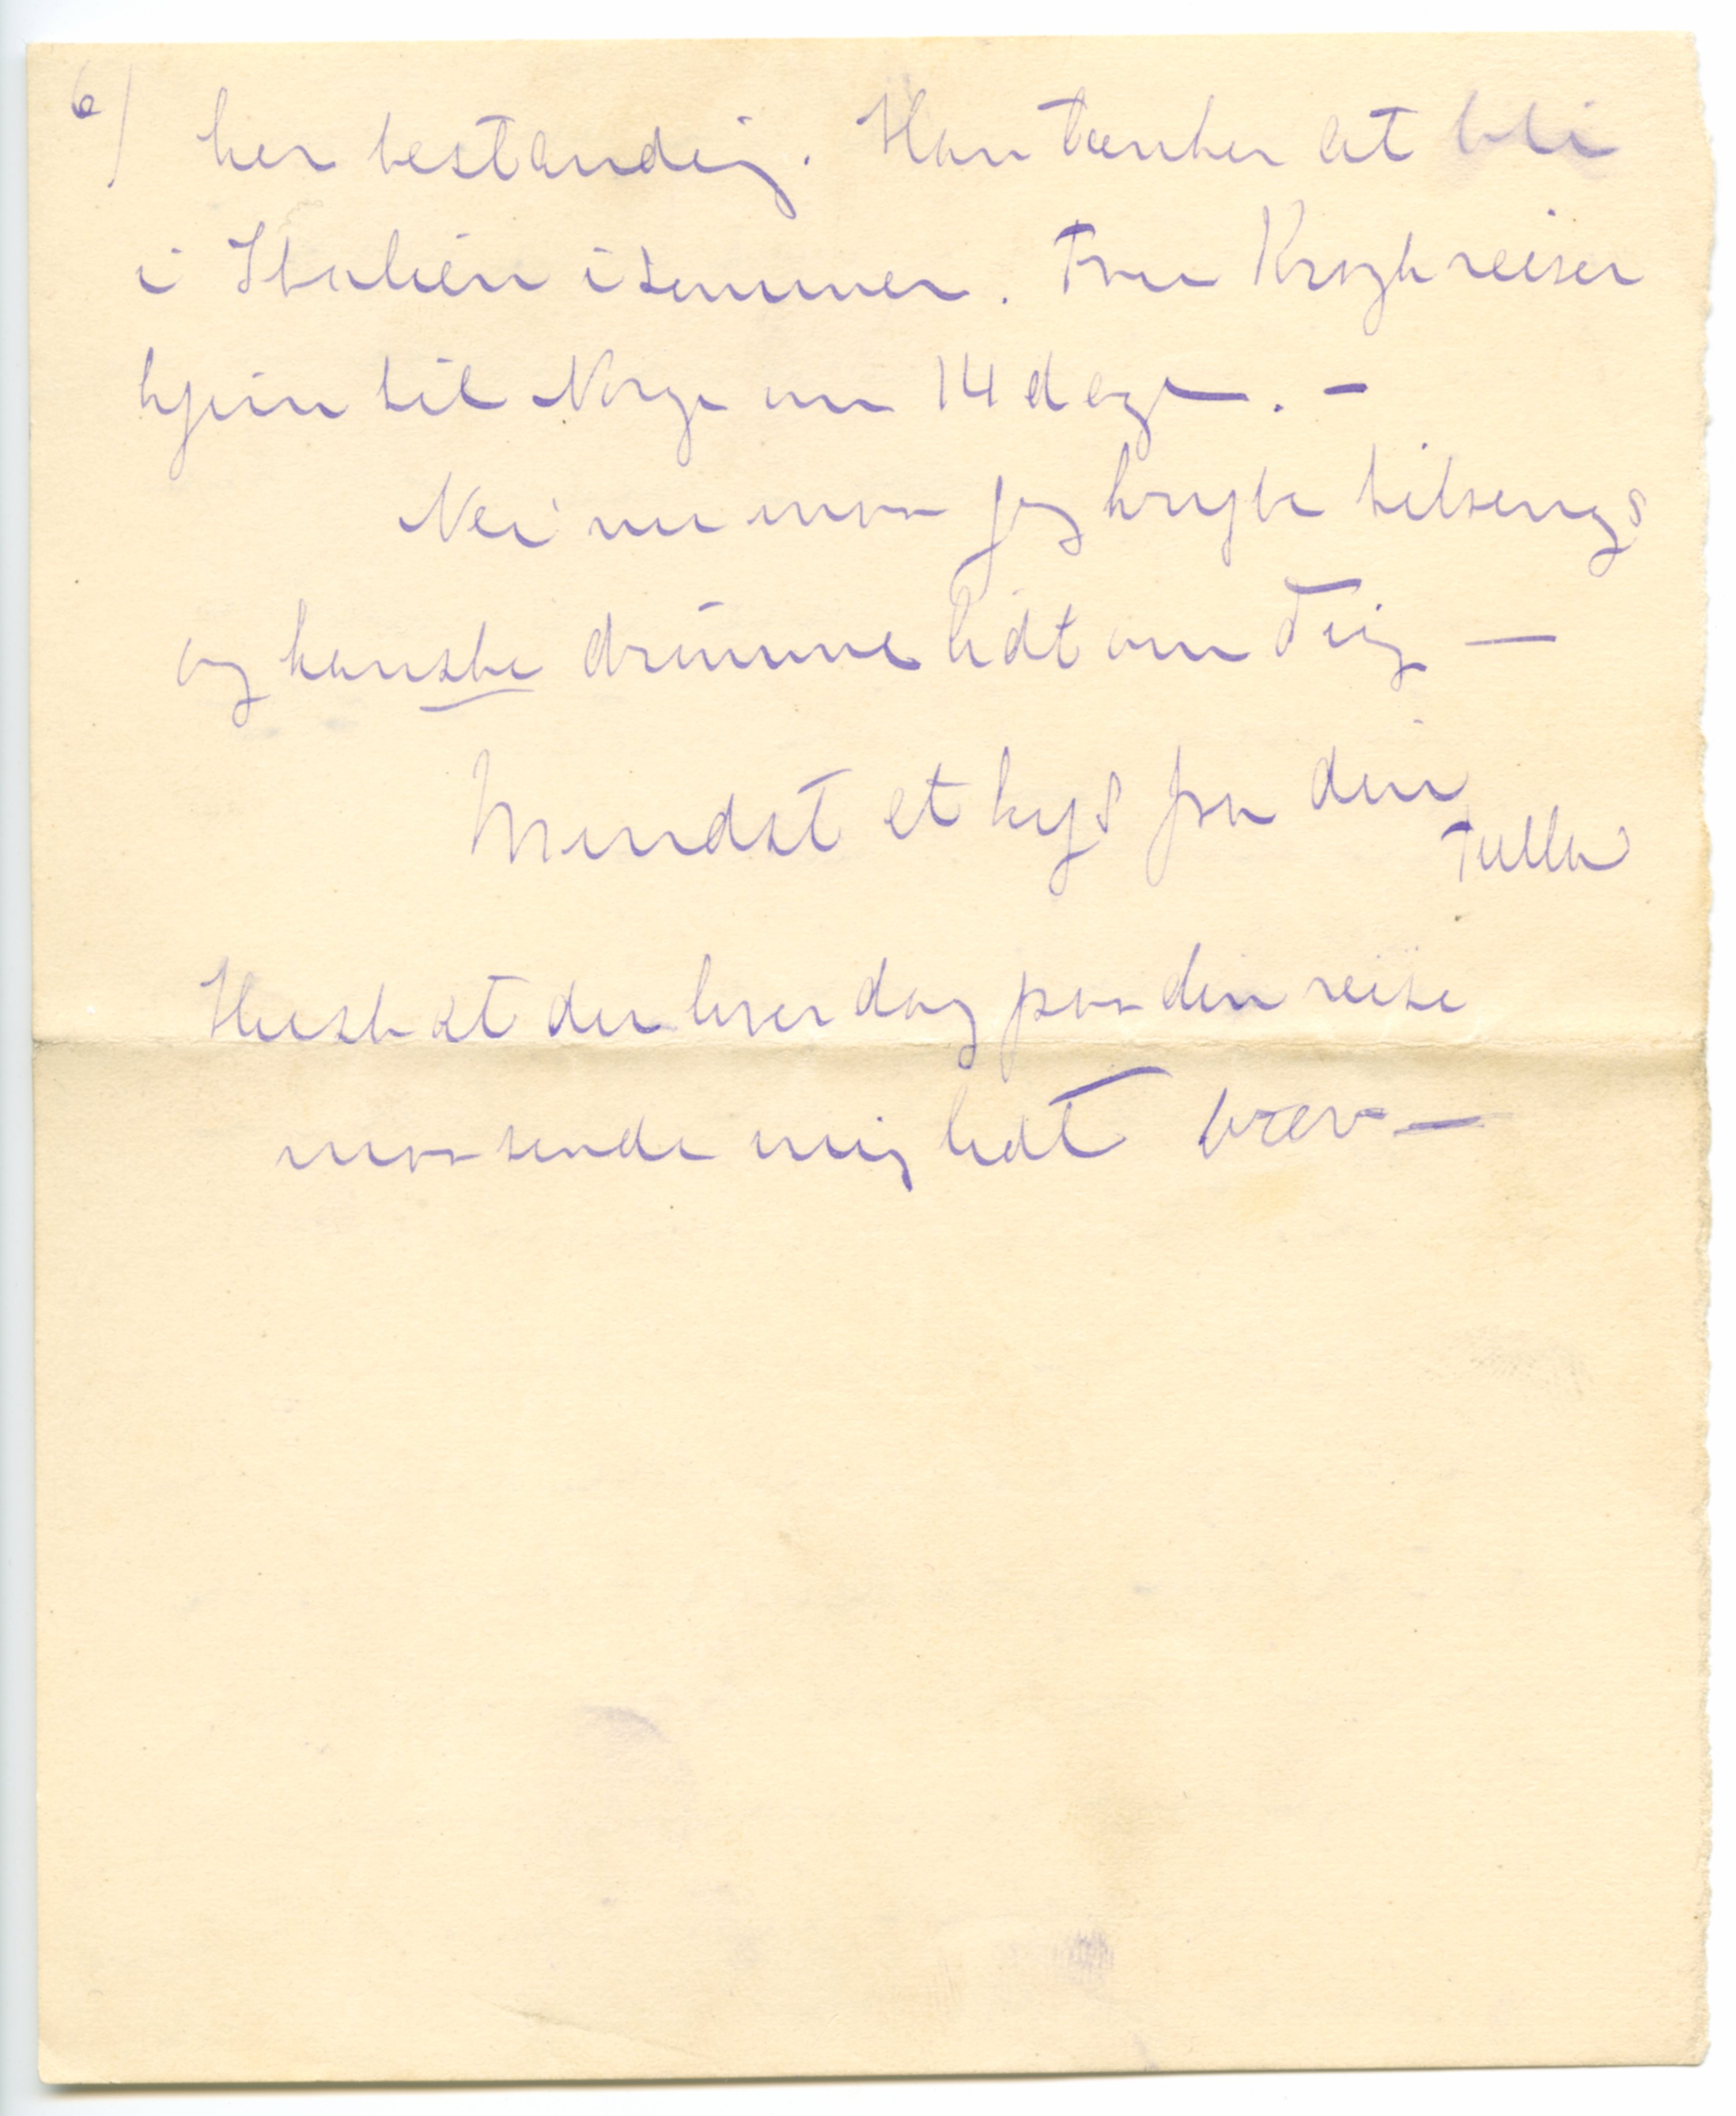 6) her bestandig. Han tænker at bli
i Italien isommer. Fru Krogh reiser
hjem til Norge om 14 dage. –
Nei nu maa jeg krybe tilsengs
og kanske drømme lidt om Dig –
Mindst et kys fra din
Tulla
Husk at du hver dag paa din reise
maa sende mig lidt brev –